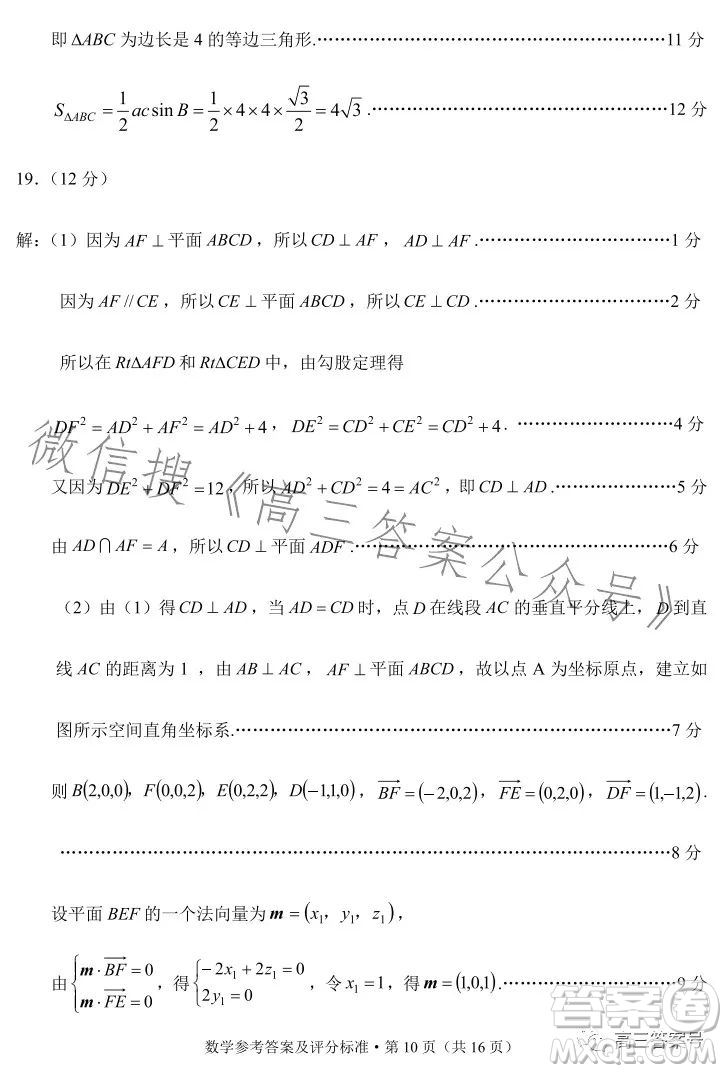 即 ΔABC 为边长是 4 的等边三角形.……………………………………………………………11 分
S_{ΔABC} = \frac{1}{2} ac sin B = \frac{1}{2} × 4 × 4 × \frac{\sqrt{3}}{2} = 4\sqrt{3} .……………………………………………12 分
19.（12 分）
解:（1）因为 AF ⊥ 平面 ABCD ，所以 CD ⊥ AF ， AD ⊥ AF .……………………………1 分
因为 AF // CE ，所以 CE ⊥ 平面 ABCD ，所以 CE ⊥ CD .……………………………2 分
所以在 RtΔAFD 和 RtΔCED 中，由勾股定理得
DF² = AD² + AF² = AD² + 4 ， DE² = CD² + CE² = CD² + 4 . ……………………4 分
又因为 DE² + DF² = 12 ,所以 AD² + CD² = 4 = AC² ，即 CD ⊥ AD .……………………5 分
由 AD ∩ AF = A ，所以 CD ⊥ 平面 ADF .……………………………………………6 分
（2）由（1）得 CD ⊥ AD ，当 AD = CD 时，点 D 在线段 AC 的垂直平分线上，D 到直
线 AC 的距离为 1 ，由 AB ⊥ AC ， AF ⊥ 平面 ABCD ，故以点 A 为坐标原点，建立如
图所示空间直角坐标系.……………………………………………………………7 分
则 B(2,0,0)，F(0,0,2)，E(0,2,2)，D(−1,1,0) ，\overrightarrow{BF} = (−2,0,2)，\overrightarrow{FE} = (0,2,0) ，\overrightarrow{DF} = (1,−1,2) .
……………………………………………………………………………………8 分
设平面 BEF 的一个法向量为 m = (x₁，y₁，z₁)，
由 {m · \overrightarrow{BF} = 0 m · \overrightarrow{FE} = 0 ，得 {−2x₁ + 2z₁ = 0 2y₁ = 0 ，令 x₁ = 1 ，得 m = (1,0,1) .……………………………9 分
数学参考答案及评分标准・第 10 页（共 16 页）
微信搜《高三答案公众号》
答案圈
高三答案号
MXQE.COM